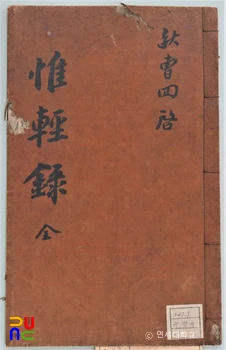 秋曹回啓
惟輕錄 全
© 연세대학교